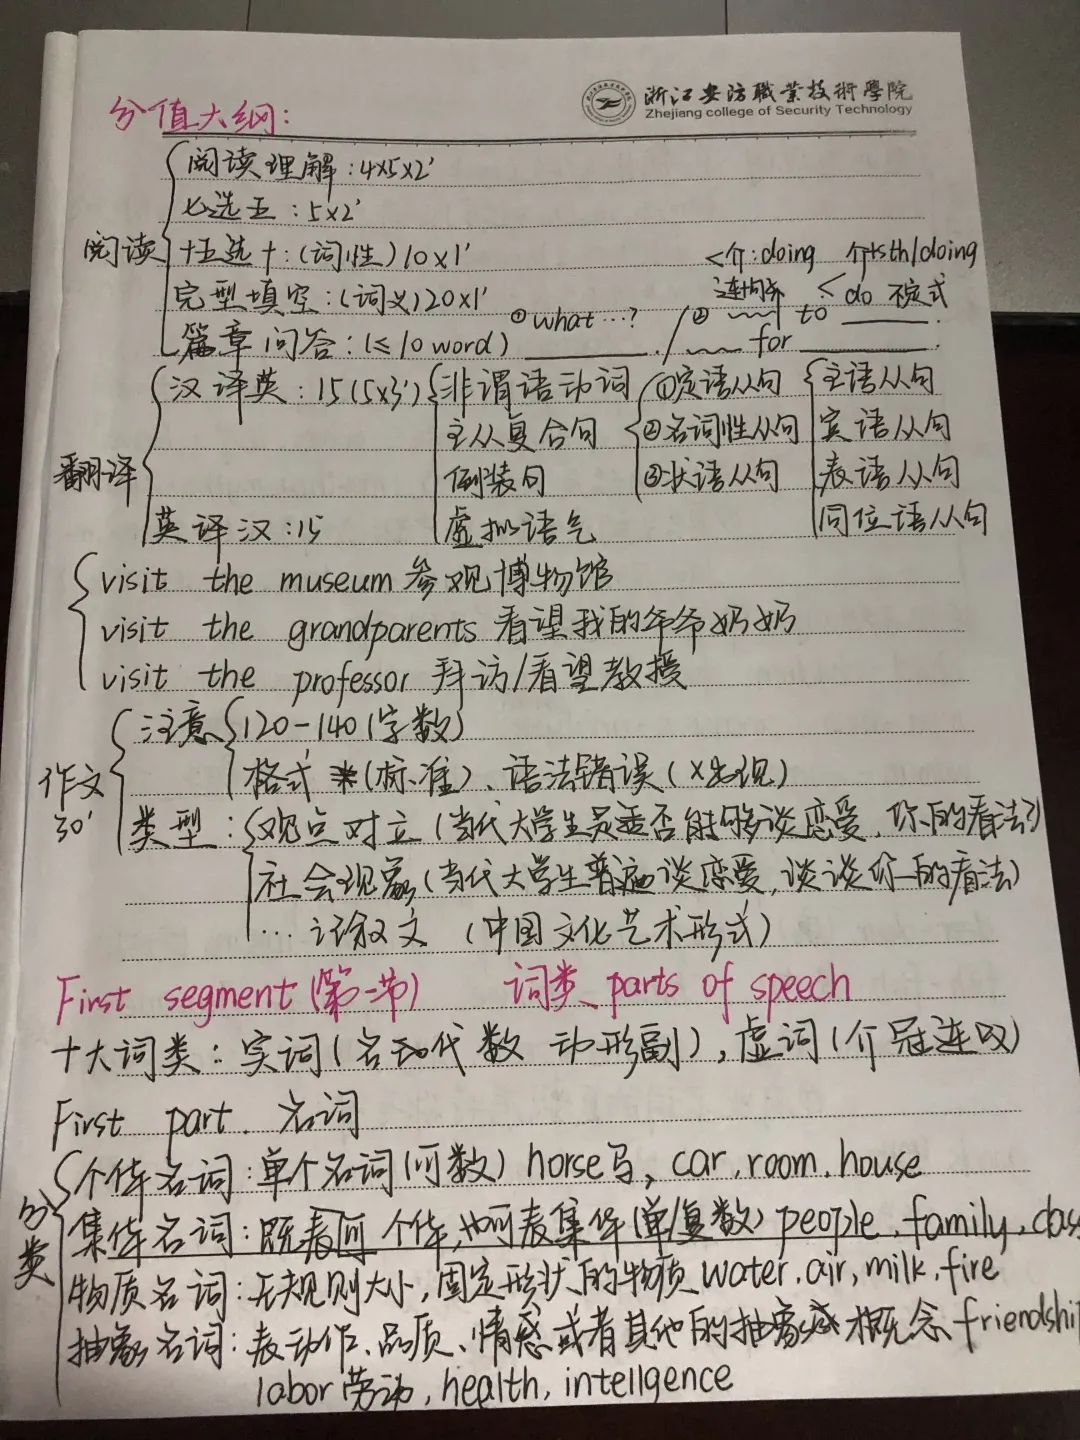 浙江安防職業技術學院
Zhejiang college of Security Technology
分值大纲:
阅读理解:4x5x2'
七选五:5x2'
阅读 十五选十:(词性)10x1' <介:doing 介+sth/doing
完型填空:(词义)20x1' 连句子 < do 不定式
篇章问答:(≤10 word) ①what...? ________. / ② ~~~ to ______.
~~~ for ________.
汉译英:15(5x3') 非谓语动词 ①定语从句 主语从句
主从复合句 ②名词性从句 宾语从句
翻译 倒装句 ③状语从句 表语从句
英译汉:15 虚拟语气 同位语从句
visit the museum 参观博物馆
visit the grandparents 看望我的爷爷奶奶
visit the professor 拜访/看望教授
注意 120-140(字数)
作文 格式 (标准)、语法错误(x出现)
30' 类型:观点对立(当代大学生是否能够谈恋爱,你的看法?)
社会现象(当代大学生普遍谈恋爱,谈谈你的看法)
... 议叙文 (中国文化艺术形式)
First segment(第一节) 词类 parts of speech
十大词类:实词(名 代数 动形副),虚词(介冠连叹)
First part. 名词
个体名词:单个名词(可数) horse马, car, room, house
分类 集体名词:既表可个体,也可表集体(单/复数) people, family, clas
物质名词:无规则大小,固定形状的物质 water, air, milk, fire
抽象名词:表动作、品质、情感或者其他的抽象概念 friendshi
labor劳动, health, intellgence